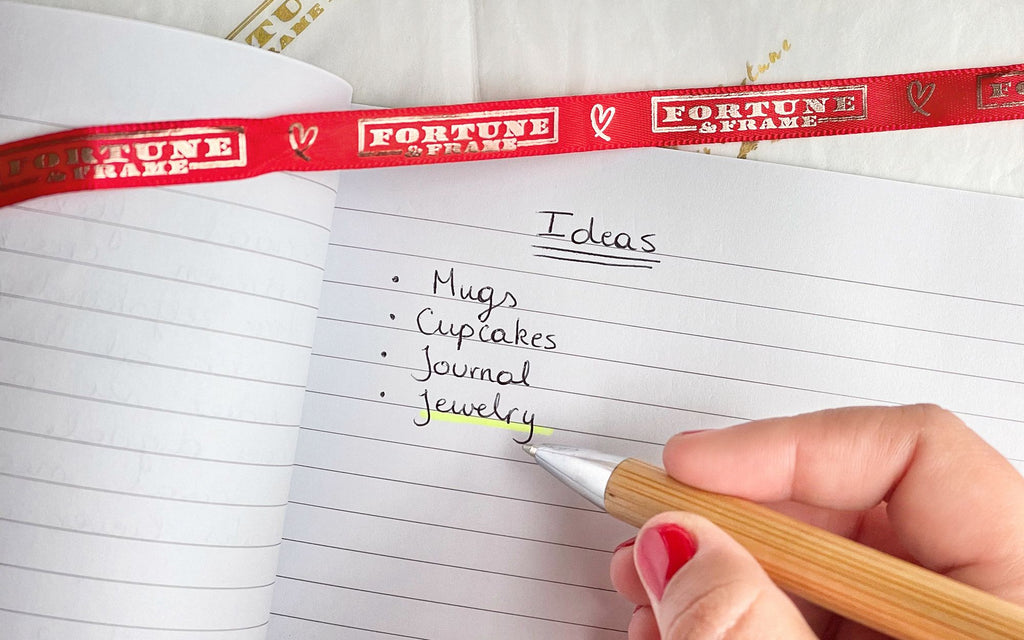 FORTUNE
& FRAME
FORTUNE
& FRAME
FORTUNE
& FRAME
Ideas
• Mugs
• Cupcakes
• Journal
• Jewelry